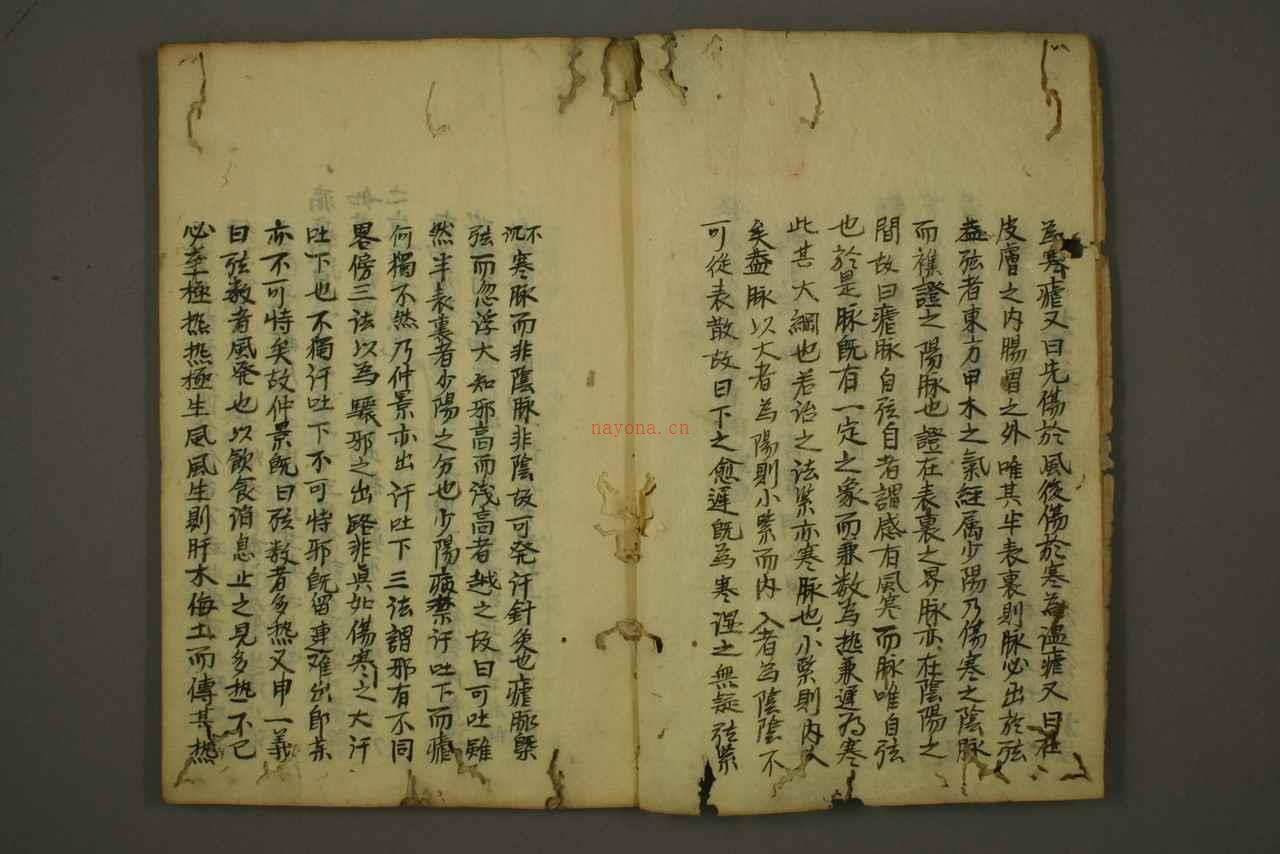 為寒瘧又曰先傷於風後傷於寒為温瘧又曰在
皮膚之内腸胃之外唯其半表裏則脉必出於弦
盖弦者東方甲木之氣経属少陽乃傷寒之陰脉
而襍證之陽脉也證在表裏之界脉亦在陰陽之
間故曰瘧脉自弦自者謂感有風寒而脉唯自弦
也於是脉既有一定之象而兼数為热兼遲为寒
此其大綱也若治之法紧亦寒脉也小緊則内入
矣盖脉以大者為陽則小紧而内入者為陰陰不
可從表散故曰下之愈遲既為寒温之無疑弦紧
不沉寒脉而非陰脉非陰故可発汗針灸也瘧脉槩
弦而忽浮大知邪高而浅高者越之故曰可吐雖
然半表裏者少陽之分也少陽病禁汗吐下而瘧
何獨不然乃仲景亦出汗吐下三法謂邪有不同
畧傍三法以為驅邪之出路非真如傷寒之大汗
吐下也不獨汗吐下不可恃邪既留連难出即
亦不可恃矣故仲景既曰弦数者多热又申一義
曰弦数者風発也以飲食消息止之見多热不已
必至極热热極生風風生則肝木侮土而傳其热
nayona.cn